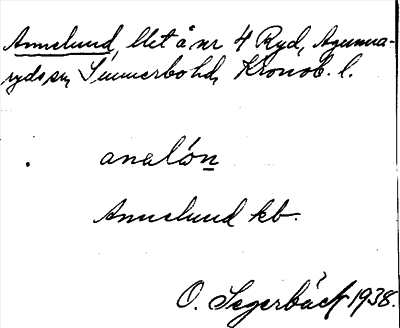 Annelund, llet å nr 4 Ryd, Agunna-
rydssn, Sunnerbo hd, Kronob. l.
. analón
Annelund kb.
O. Segerbäck 1938.